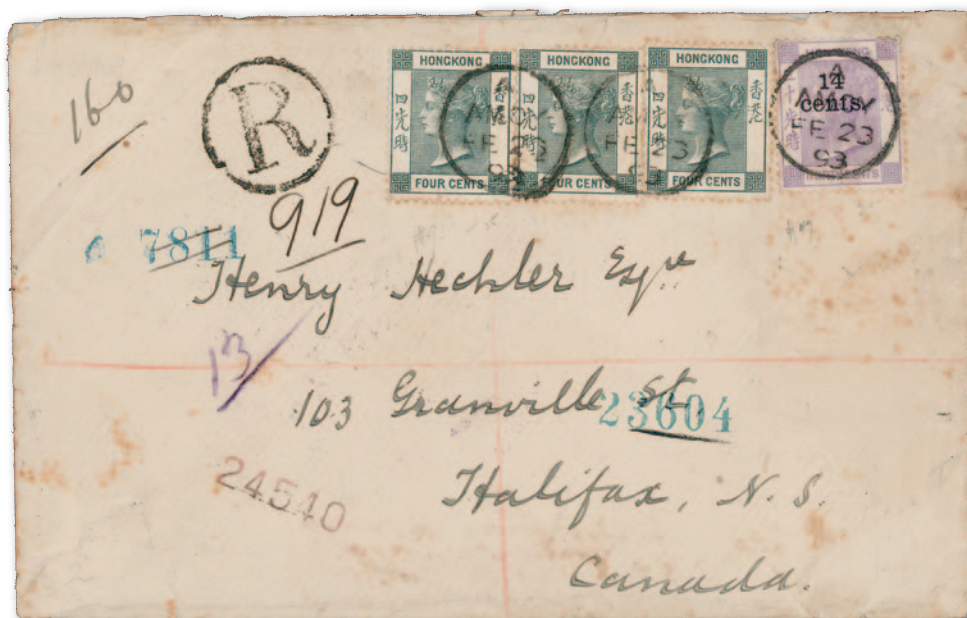 160
R
919
7811
HONGKONG
四先時
香港
FOUR CENTS
HONGKONG
四先時
香港
FOUR CENTS
HONGKONG
四先時
香港
FOUR CENTS
HONGKONG
14
cents.
A
AMOY
FE 23
93
FE 23
93
FE 23
Henry Hechler Esqre
13
103 Granville St.
23604
24540
Halifax, N. S.
Canada.